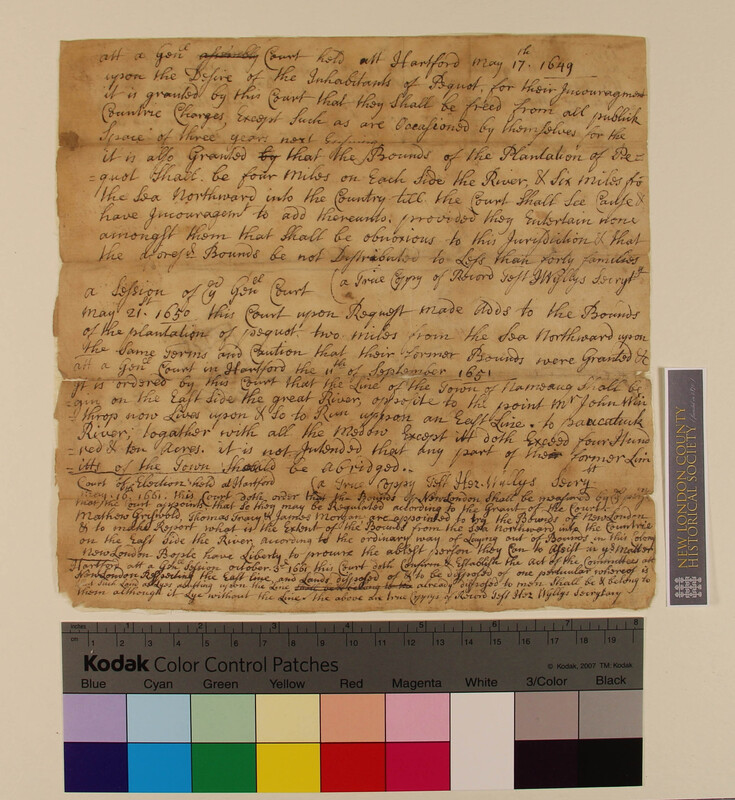 att a Genll assembly Court held att Hartford May 17th. 1649
upon the Desire of the Inhabitants of Pequot, for their Jncouragment
it is granted by this Court that they Shall be freed from all publick
Countrie Charges, Except Such as are Occasioned by themselves for the
Space of three years next Ensuing
it is also Granted by that the Bounds of the Plantation of Pe-
=quot Shall be four Miles on Each Side the River, & Six Miles fro
the Sea Northward into the Country till the Court Shall See Cause &
have Jncouragemt to add thereunto, provided they Entertain none
amongst them that Shall be obnoxious to this Jurisdiction & that
the aforesd Bounds be not Distributed to Less than forty families
(a True Coppy of Record Test H Wyllys Secryt
a Session of ye Genell Court
May 21st. 1650 this Court upon Request made Adds to the Bounds
of the plantation of pequot two miles from the Sea Northward upon
the Same terms and Caution that their former Bounds were Granted &
att a Genl Court in Hartford the 11th of September 1651
it is ordered by this Court that the Line of the Town of Nameaug Shall be
=gin on the East Side the great River, opposite to the point Mr John Win
=throp now Lives upon & So to Run uppon an East Line to paucatuck
River, together with all the Medow Except itt doth Exceed four Hund
=red & ten Acres. it is not Jntended that any part of their former Lim
=itts of the Town Should be abridged..
Court of Election held att Hartford (a True Coppy Test Hez: Wyllys Secryt
May 16th. 1661. this Court doth order that the Bounds of New London Shall be measured by
the Court appoints that So they may be Regulated according to the Grant of the Court
Mathew Griswold Thomas Tracy & James Morgan are appointed to try the Bounds of New London
& to make Report what is the Extent of the Bounds from the Sea Northward into the Countrie
on the East Side the River, according to the ordinary way of Laying out of Bounds in this Colony
New London People have Liberty to procure the ablest person they Can to Assist in ye Matter
Hartford att a Genll Session October 3d 1661 this Court doth Confirm & Establish the Act of the Committees att
New London Respecting the East Line, and Lands disposed of & to be disposed of
& Such Land as Lyes abutting upon the Line already disposed to men Shall be & belong to
them although it Lye without the Line. the above are True Coppys of Record Test Hez Wyllys Secretary
NEW LONDON COUNTY
HISTORICAL SOCIETY
inches 1 2 3 4 5 6 7 8
cm 1 2 3 4 5 6 7 8 9 10 11 12 13 14 15 16 17 18 19
Kodak Color Control Patches
© Kodak, 2007 TM: Kodak
Blue Cyan Green Yellow Red Magenta White 3/Color Black